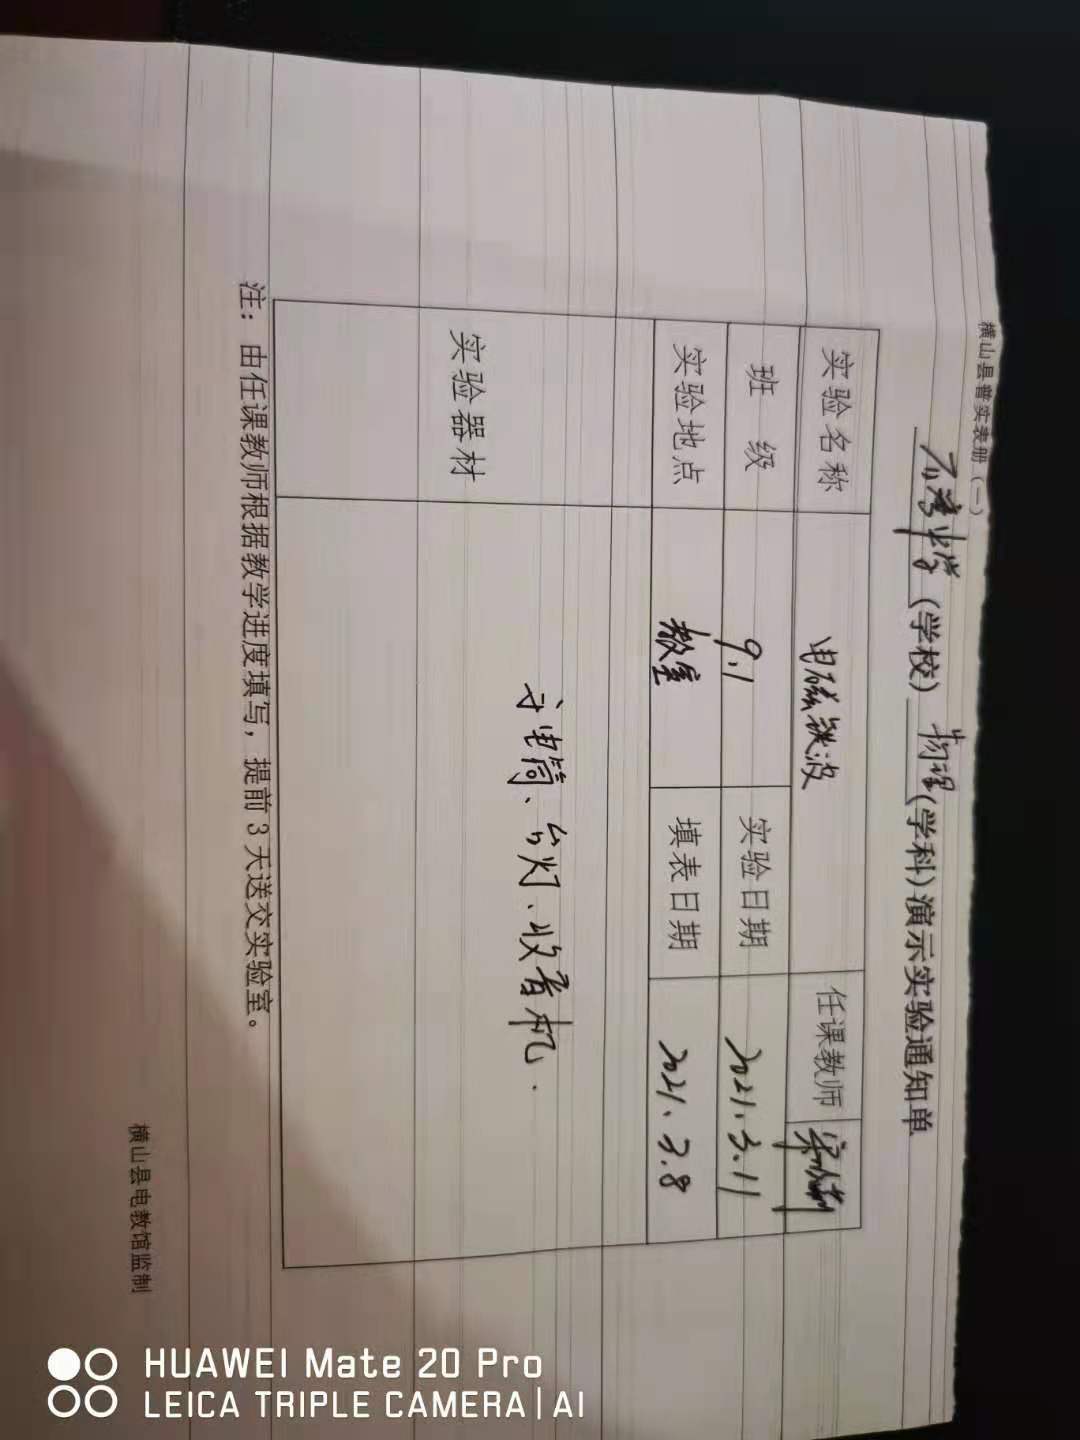 横山县普实表册（一）
石湾中学（学校）物理（学科）演示实验通知单
实验名称 电磁铁波 任课教师
班级 9.1 实验日期 2021.3.11
实验地点 教室 填表日期 2021.3.8
实验器材 手电筒、台灯、收音机.
注：由任课教师根据教学进度填写，提前3天送交实验室。
横山县电教馆监制
HUAWEI Mate 20 Pro
LEICA TRIPLE CAMERA | AI